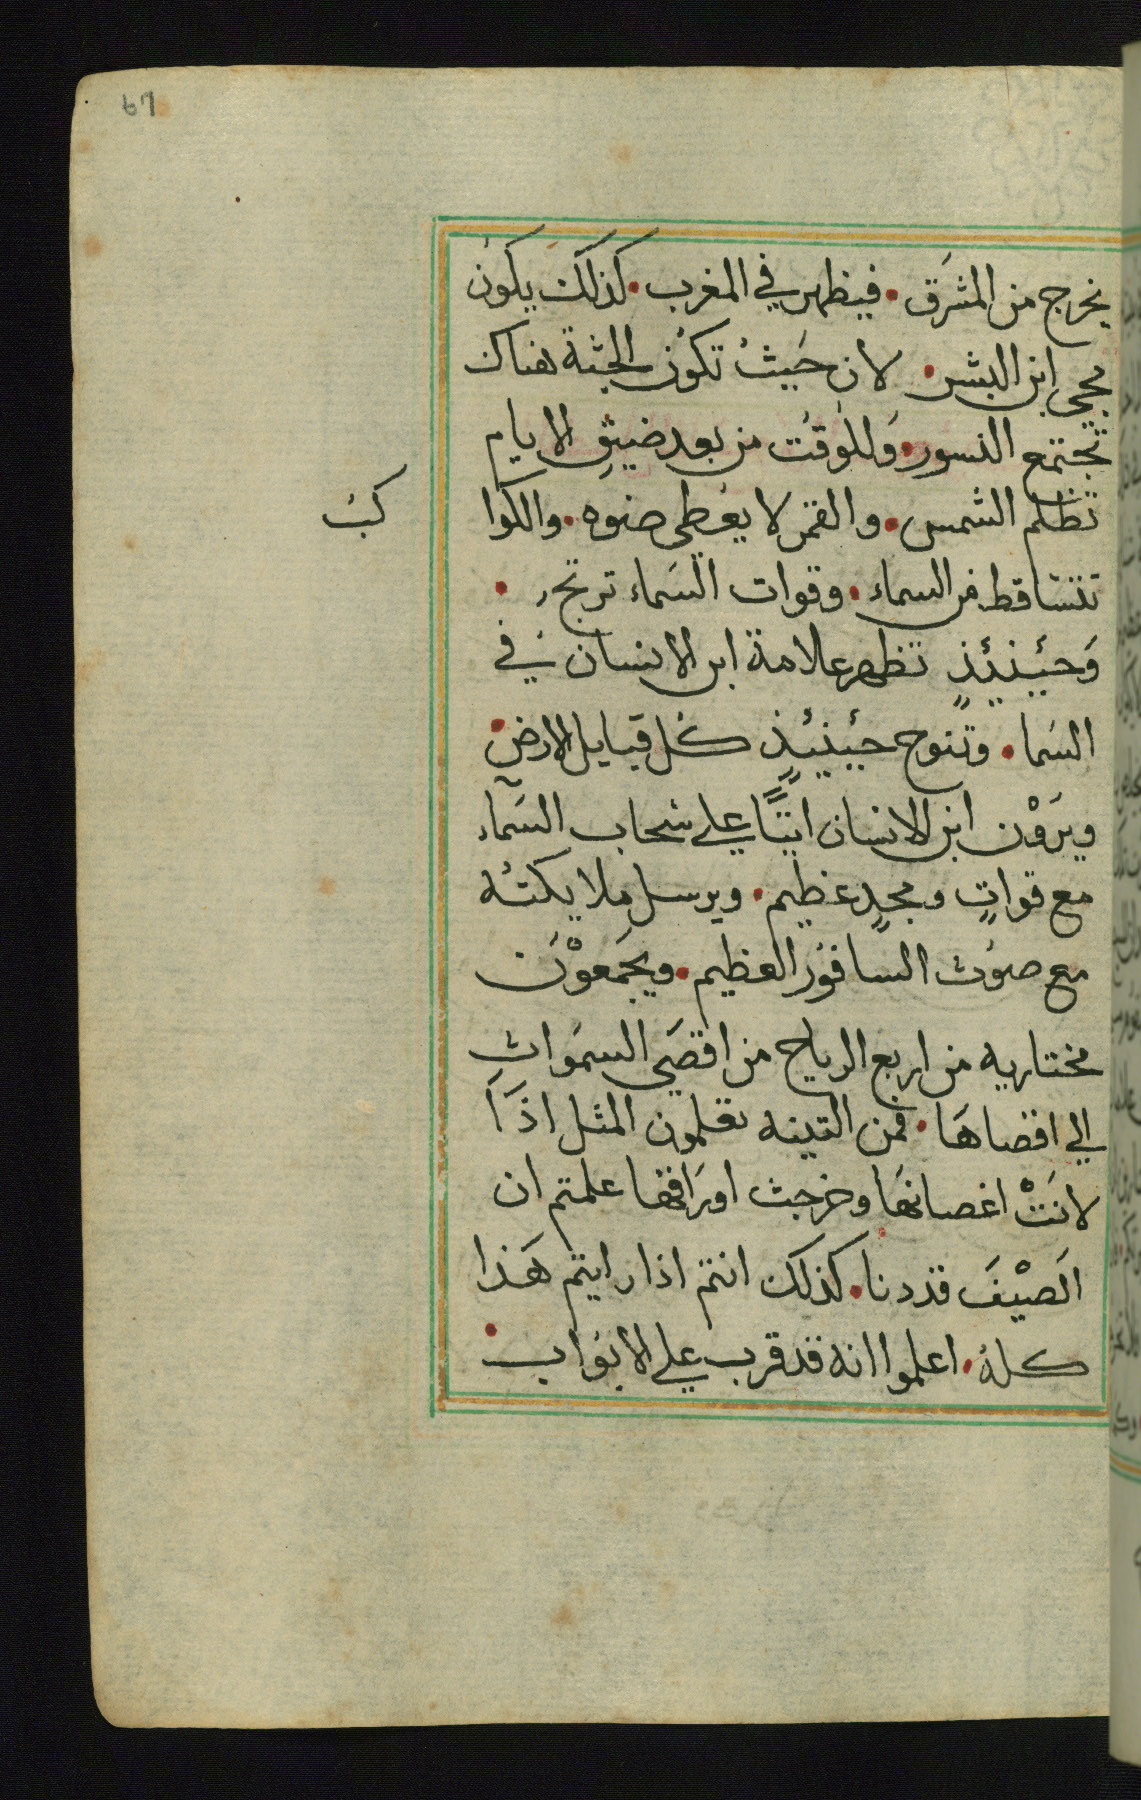 67
يخرج من المشرق • فيظهر في المغرب • كذلك يكون
مجي ابن البشر • لان حيث تكون الجثة هناك
تجتمع النسور • وللوقت من بعد ضيق الايام
تظلم الشمس • والقمر لا يعطى ضوه • والكوا
كب
تتساقط من السماء • وقوات السماء ترتج •
وحينئذٍ تظهر علامة ابن الانسان في
السما • وتنوح حينئذٍ كل قبايل الارض •
ويرون ابن الانسان اتيًا علي سحاب السمآء
مع قواتٍ ومجدٍ عظيم • ويرسل ملايكته
مع صوت السافور العظيم • ويجمعون
مختاريه من اربع الرياح من اقصي السموات
الي اقصاها • فمن التينه تعلمون المثل اذا
لانت اغصانها وخرجت اوراقها علمتم ان
الصيف قد دنا • كذلك انتم اذا رايتم هذا
كله • اعلموا انه قد قرب علي الابواب •